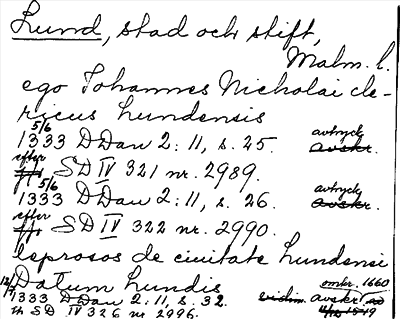 Lund, stad och stift,
Malm. l.
ego Johannes Nicholai cle-
ricus Lundensis
5/6
1333 DDan 2:11, s. 25. avtryck avskr.
efter SD IV 321 nr. 2989.
5/6
1333 DDan 2:11, s. 26. avtryck avskr.
efter SD IV 322 nr. 2990.
leprosos de ciuitate Lundensi
Datum Lundis
1333 DDan 2:11, s. 32. vidim. avskr. omkr. 1660
th SD IV 326 nr. 2996.